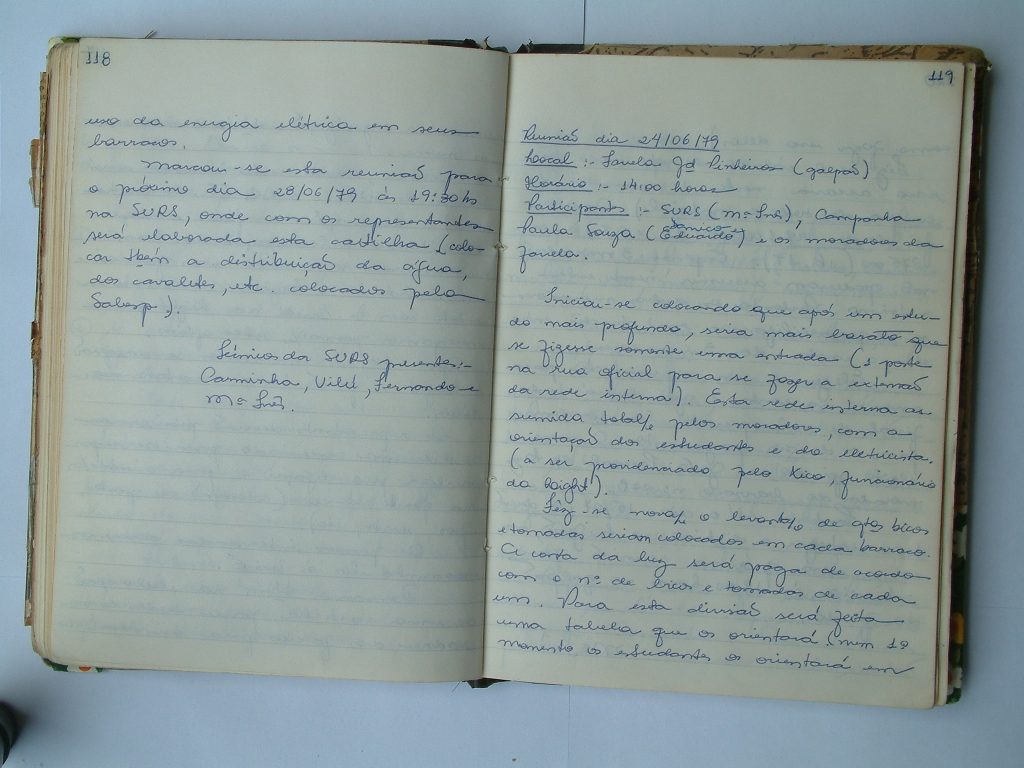 118
uso da energia elétrica em seus
barracos.
Marcou-se esta reunião para
o próximo dia 28/06/79 às 19:30hs
na SURS, onde com os representantes
será elaborada esta cartilha (colo-
car tbém a distribuição da água,
dos cavaletes, etc. colocados pela
Sabesp.).
Técnicos da SURS presentes:-
Carminha, Vilú, Fernando e
Mª Inês.
119
Reunião dia 24/06/79
Local :- Favela Jd Pinheiros (galpão)
Horário :- 14:00 horas
Participants :- SURS (Mª Inês), Campanha
Paula Souza (Eduardo e) e os moradores da
favela.
Iniciou-se colocando que após um estu-
do mais profundo, seria mais barato que
se fizesse somente uma entrada (1 poste
na rua oficial para se fazer a extensão
da rede interna). Esta rede interna as
sumida total/e pelos moradores, com a
orientação dos estudantes e do eletricista.
(a ser providenciado pelo Kico, funcionário
da Light).
Fêz-se nova/e o levanto/o de qtos bicos
e tomadas seriam colocados em cada barraco.
A conta da luz será paga de acordo
com o nº de bicos e tomadas de cada
um. Para esta divisão será feita
uma tabela que os orientará (num 1º
momento os estudantes os orientará em